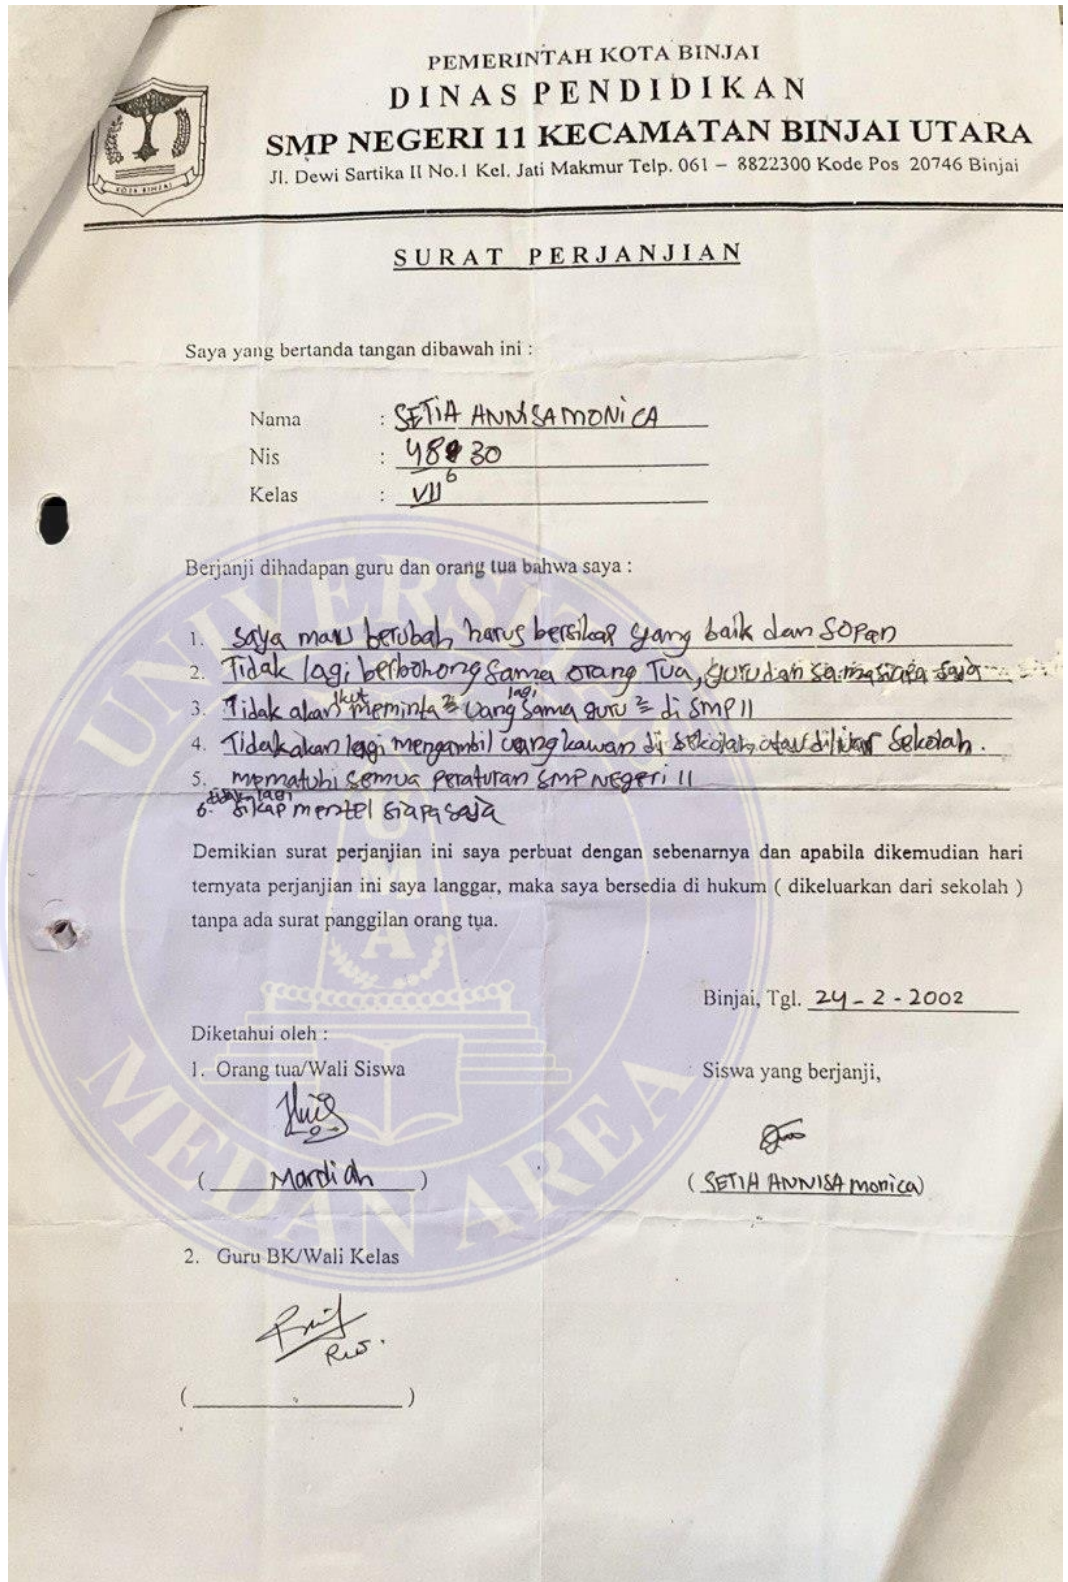 PEMERINTAH KOTA BINJAI
DINAS PENDIDIKAN
SMP NEGERI 11 KECAMATAN BINJAI UTARA
Jl. Dewi Sartika II No.1 Kel. Jati Makmur Telp. 061 – 8822300 Kode Pos 20746 Binjai
KOTA BINJAI
SURAT PERJANJIAN
Saya yang bertanda tangan dibawah ini :
Nama : SETIA ANNISA MONICA
Nis : 48 30
Kelas : VII 6
Berjanji dihadapan guru dan orang tua bahwa saya :
1. saya mau berubah harus bersikap yang baik dan sopan
2. Tidak lagi berbohong sama orang Tua, guru dan sama siapa saja
3. Tidak akan ikut meminta 2 uang lagi sama guru 2 di SMP 11
4. Tidak akan lagi mengambil uang kawan di sekolah atau diluar sekolah.
5. mematuhi semua peraturan SMP NEGERI 11
6. tidak lagi sikap mentel siapa saja
Demikian surat perjanjian ini saya perbuat dengan sebenarnya dan apabila dikemudian hari
ternyata perjanjian ini saya langgar, maka saya bersedia di hukum ( dikeluarkan dari sekolah )
tanpa ada surat panggilan orang tua.
Binjai, Tgl. 24 - 2 - 2002
Diketahui oleh :
1. Orang tua/Wali Siswa
Siswa yang berjanji,
( Mardiah )
( SETIA ANNISA monica )
2. Guru BK/Wali Kelas
UNIVERSITAS
MEDAN AREA